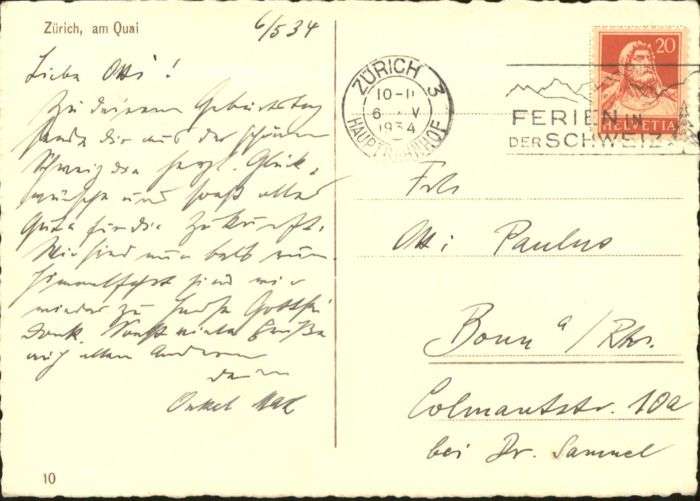 Zürich, am Quai
6/5 34
Liebe Otti!
Zu deinem Geburtstag
sende dir aus der schönen
Schweiz die herzl. Glück-
wünsche und sonst alles
Gute für die Zukunft.
Wir sind nun bald rum
Himmelfahrt sind wir
wieder zu Hause Gott sei
Dank. Sonst viele Grüße
auch allen Anderen
dein
Onkel Max
10
ZÜRICH 3
HAUPTBAHNHOF
10-11
6. V.
1934
FERIEN IN
DER SCHWEIZ
20
HELVETIA
Frl.
Otti Paulus
Bonn a/Rh.
Colmantstr. 10a
bei Dr. Samuel